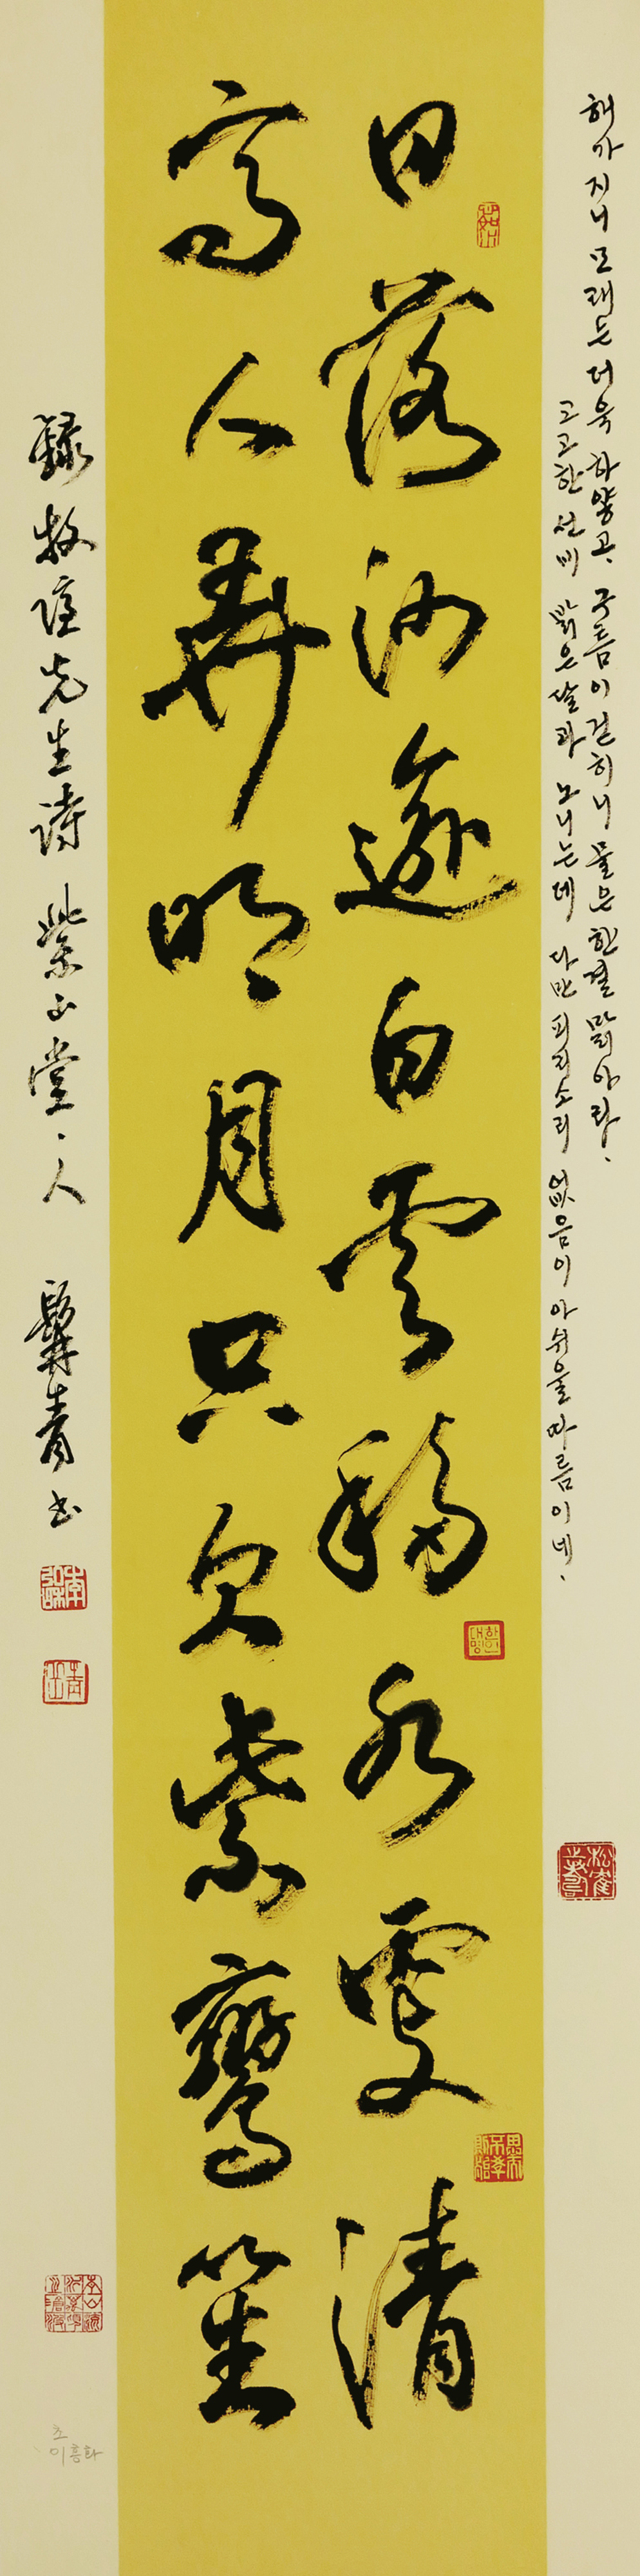 해가지니 모래는 더욱 하얗고, 구름이 걷히니 물은 한결 맑아라.
고고한 선비 맑은달과 노니는데 다만 피리소리 없음이 아쉬울따름이네.
日落沙逾白雲移水更清
高人弄明月只欠紫鸞笙
錄牧隱先生詩